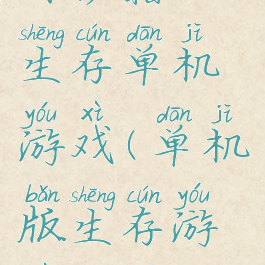 shēng cún dān jī
生存单机
yóu xì dān jī
游戏(单机
bǎn shēng cún yóu
版生存游